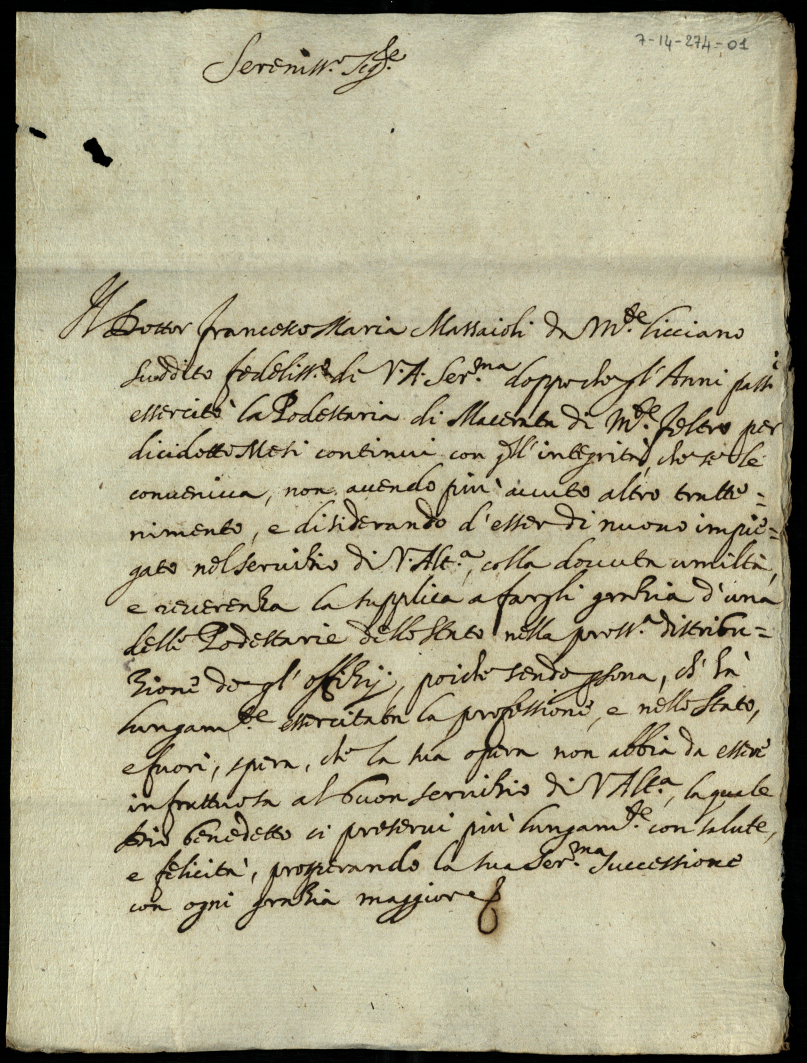 7-14-274-01
Sereniss.º Sig.re
Il Dottor Francesco Maria Massaioli da M.te Cicciano
suddito fedeliss.º di V.A. Ser.ma doppo che gl'Anni passi
essercitò la Podestaria di Macerata di M.te Feltro per
dicidotto Mesi continui con qll'integrità, che se le
conveniva, non avendo più avuto altro tratte=
nimento, e disiderando d'esser di nuovo impie=
gato nel servitio di V. Alt.a, colla dovuta umiltà,
e reverenza la supplica a fargli gratia d'una
delle Podestarie dello Stato nella pross.a distribu=
zione de gl'offizij, poiche sendo psona, ch'hà
lungam.te essercitata la professione, e nello Stato,
e fuori, spera, che la sua opera non abbia da essere
infruttuosa al buon servitio di V Alt.a, la quale
Dio benedetto ci preservi più lungam.te con salute,
e felicità, prosperando la sua Ser.ma Successione
con ogni gratia maggiore